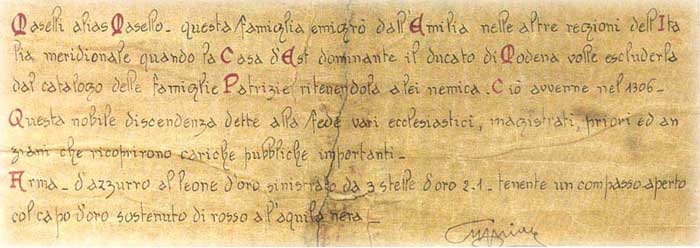 Maselli alias Masello_ questa famiglia emigrò dall'Emilia nelle altre regioni dell'Ita
lia meridionale quando la Casa d'Est dominante il ducato di Modena volle escluderla
dal catalogo delle famiglie Patrizie ritenendola a lei nemica. Ciò avvenne nel 1306_
Questa nobile discendenza dette alla fede vari ecclesiastici, magistrati, priori ed an
ziani che ricoprirono cariche pubbliche importanti_
Arma_ d'azzurro al leone d'oro sinistrato da 3 stelle d'oro 2.1_ tenente un compasso aperto
col capo d'oro sostenuto di rosso a l'aquila nera_